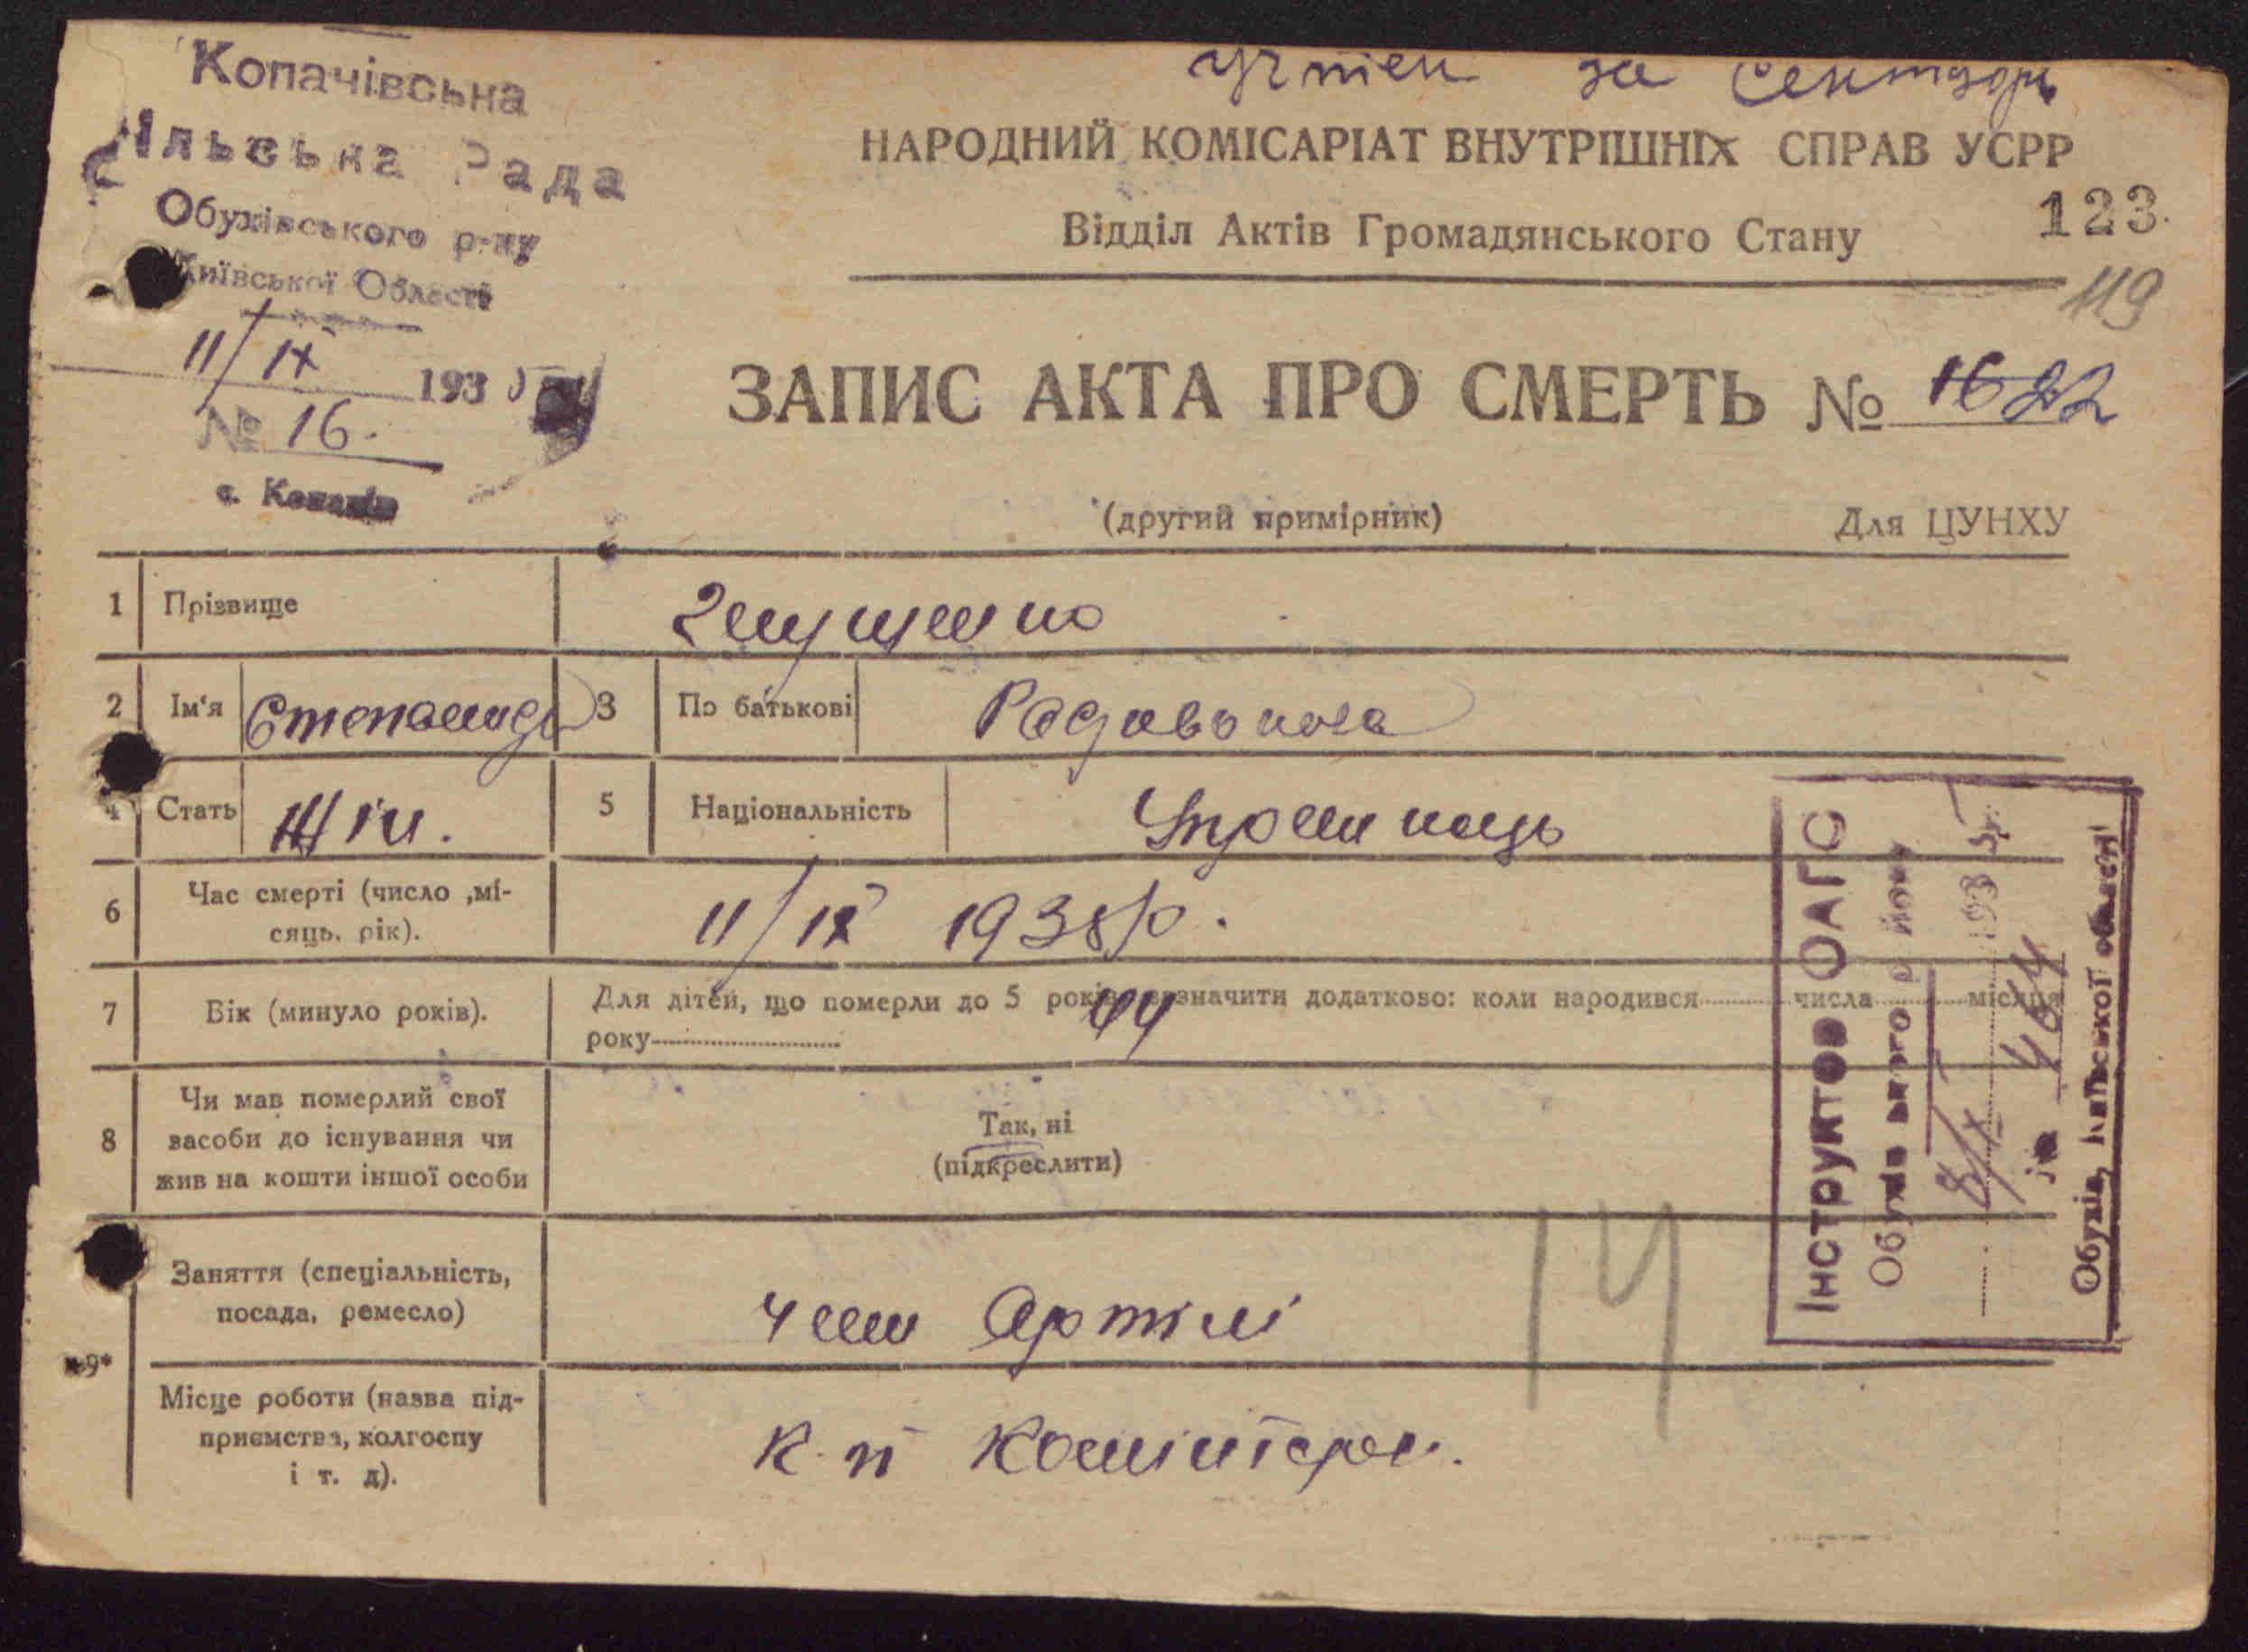 Копачівська
Сільська Рада
Обухівського р-ну
Київської Області
11/IX 193
№ 16.
учтен за Сентябрь
НАРОДНИЙ КОМІСАРІАТ ВНУТРІШНІХ СПРАВ УСРР
Відділ Актів Громадянського Стану
123
119
ЗАПИС АКТА ПРО СМЕРТЬ № 16 22
(другий примірник)
Для ЦУНХУ
1 Прізвище
2 Ім'я Степанида 3 По батькові Радивонова
4 Стать Жін. 5 Національність Українець
6 Час смерті (число ,мі-
сяць. рік). 11/IX 193 р.
7 Вік (минуло років). 44
Для дітей, що померли до 5 років зазначити додатково: коли народився числа місяця
року
8 Чи мав померлий свої
засоби до існування чи
жив на кошти іншої особи
Так, ні
(підкреслити)
9* Заняття (спеціальність,
посада, ремесло) член Артілі
Місце роботи (назва під-
приємства, колгоспу
і т. д). К-п Комінтерн.
14
Інструктор ОАГС
Обухівського району
8/X 193
№ 464
Обухів, Київської області